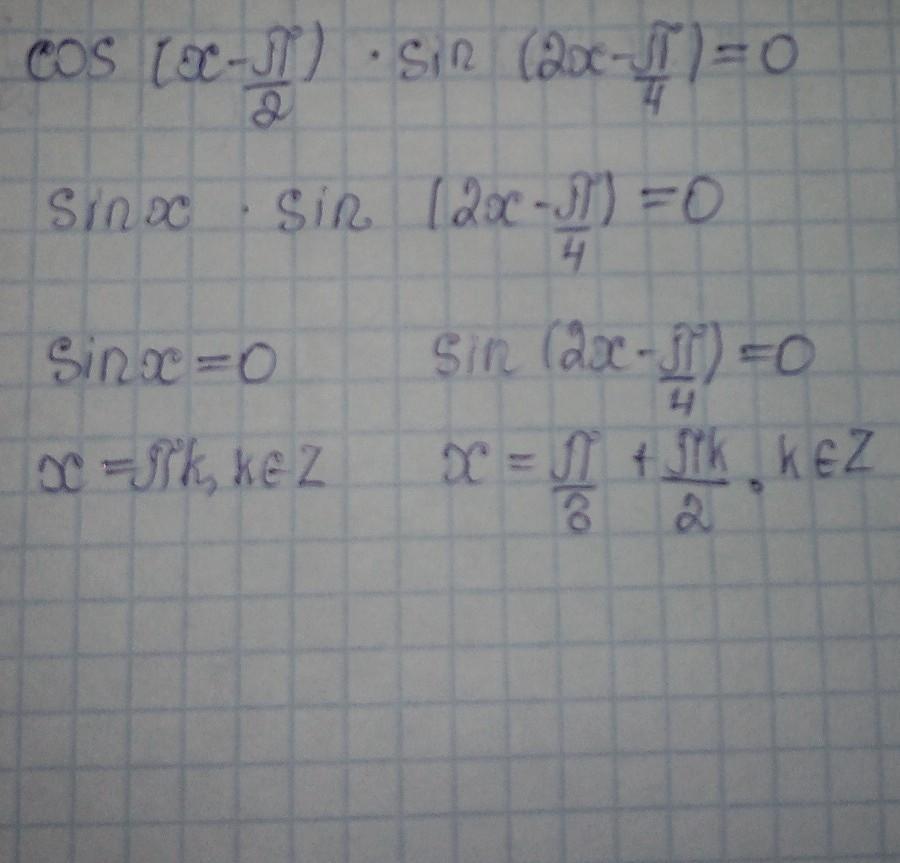 cos (x - π/2) · sin (2x - π/4) = 0
sin x · sin (2x - π/4) = 0
sin x = 0 sin (2x - π/4) = 0
x = πk, k ∈ Z x = π/8 + πk/2, k ∈ Z